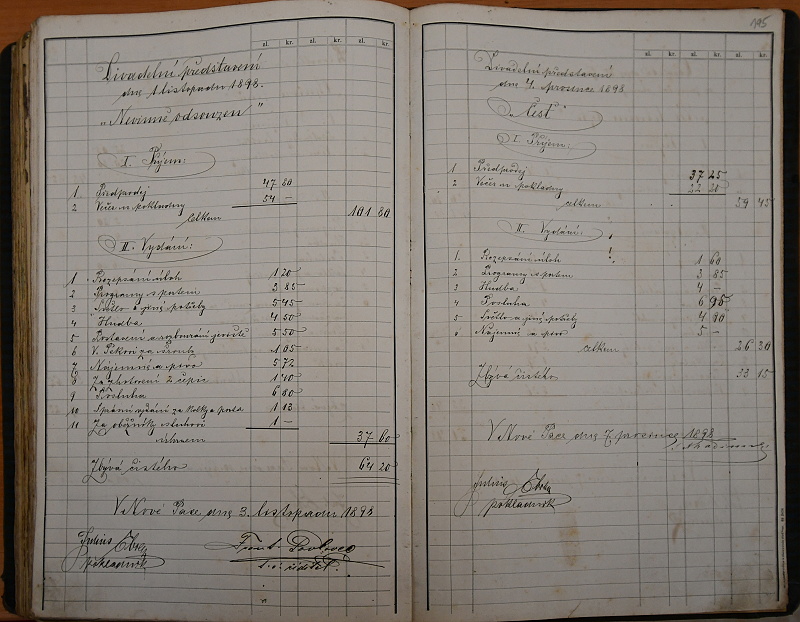 zl. kr. zl. kr. zl. kr.
Divadelní představení
dne 1 listopadu 1898.
„Nevinně odsouzen"
I. Příjem:
1 Předprodej 47 80
2 Večer u pokladny 54 —
Celkem 101 80
II. Vydání:
1 Rozepsání úloh 1 20
2 Programy s putem 3 85
3 Světlo a jiné potřeby 5 45
4 Hudba 4 50
5 Postavení a vybourání jeviště 5 50
6 1 05
7 Nájemné a otop 5 72
8 Za zhotovení 2 čepic 1 40
9 Posluha 6 80
10 Správní vydání za kolky a 1 13
11 Za 1 —
úhrnem 37 60
Zbývá čistého 64 20
V Nové Pace dne 3. listopadu 1898
Julius
pokladník
Frant.
t. č. ředitel.
195
zl. kr. zl. kr. zl. kr.
Divadelní představení
dne 4. prosince 1898
„Čest"
I. Příjem:
1 Předprodej 37 25
2 Večer u pokladny 22 20
celkem 59 45
II. Vydání:
1. Rozepsání úloh 1 60
2 Programy s putem 3 85
3 Hudba 4 —
4 Posluha 6 95
5 Světlo a jiné potřeby 4 90
6 Nájemné a otop 5 —
celkem 26 30
Zbývá čistého 33 15
V Nové Pace dne 7. prosince 1898
Julius
pokladník